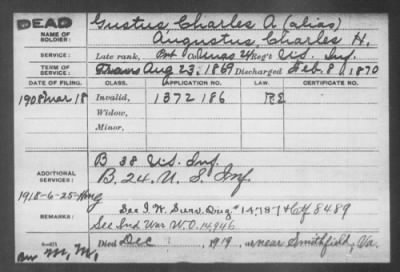 DEAD
Gustus Charles A. (alias)
Augustus Charles H.
NAME OF SOLDIER:
SERVICE: Late rank, Pvt Co. Unas 24 Reg't U.S. Inf.
TERM OF SERVICE: Aug 23, 1869 Discharged Feb. 8, 1870
DATE OF FILING. CLASS. APPLICATION NO. LAW. CERTIFICATE NO.
1908 Mar 18 Invalid, 1372186
Widow,
Minor,
B 38 U.S. Inf.
ADDITIONAL SERVICES: B. 24. U. S. Inf.
1918-6-25-
REMARKS: See I. W. Surv. Orig. 14787 + Ctf 8489
See Ind War W.O. 14946
Died Dec , 1919, at near Smithfield, Va.